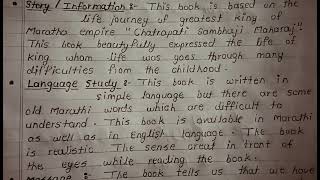 • Story / Information :- This book is based on the
life journey of greatest king of
Maratha empire "Chatrapati Sambhaji Maharaj."
This book beautyfully expressed the life of
king whom life was goes through many
difficulties from the childhood.
• Language Study :- This book is written in
simple language but there are some
old Marathi words which are difficult to
understand. This book is available in Marathi
as well as in English language. The book
is realistic. The sense creat in front of
the eyes while reading the book.
• Message :- The book tells us that we have